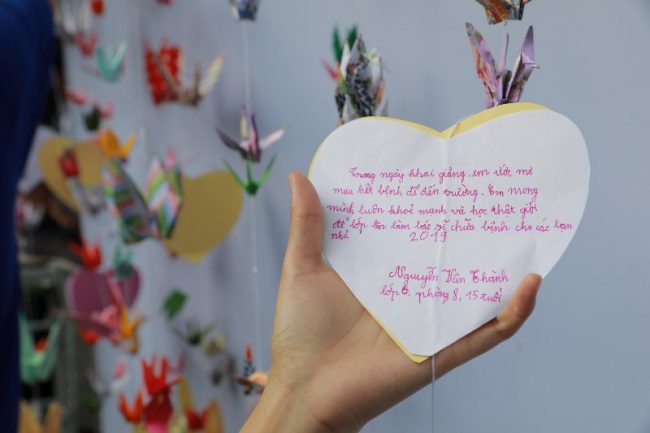 Trong ngày khai giảng. em ước mơ
mau hết bệnh để đến trường. Em mong
mình luôn khoẻ mạnh và học thật giỏi
để lớp lớn làm bác sĩ chữa bệnh cho các bạn
nhỏ 2019
Nguyễn Văn Thành
lớp 6. phòng 8, 15 tuổi